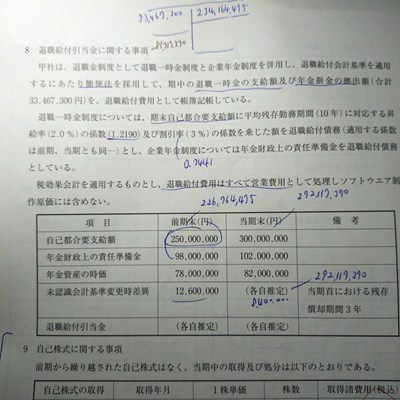 33,467,300 234,164,495
8 退職給付引当金に関する事項
甲社は、退職金制度として退職一時金制度と企業年金制度を併用し、退職給付会計基準を適用
するにあたり簡便法を採用して、期中の退職一時金の支給額及び年金掛金の拠出額（合計
33.467,300円）を、退職給付費用として帳簿記帳している。
退職一時金制度については、期末自己都合要支給額に平均残存勤務期間（10年）に対応する昇
給率（2.0％）の係数（1.2190）及び割引率（3％）の係数を乗じた額を退職給付債務（適用する係数
は前期、当期とも同一）とし、企業年金制度については年金財政上の責任準備金を退職給付債務
としている。
0.7441
税効果会計を適用するものとし、退職給付費用はすべて営業費用として処理しソフトウエア制
作原価には含めない。
226,764,495 292,119,390
項 目 前期末（円） 当期末（円） 備 考
自己都合要支給額 250,000,000 300,000,000
年金財政上の責任準備金 98,000,000 102,000,000
年金資産の時価 78,000,000 82,000,000
292,119,390
未認識会計基準変更時差異 12,600,000 （各自推定） 当期首における残存
償却期間3年
8,400,000
退職給付引当金 （各自推定） （各自推定）
9 自己株式に関する事項
前期から繰り越された自己株式はなく、当期中の取得及び処分は以下のとおりである。
自己株式の取得 取得年月 1株単価 株数 取得諸費用（税込）